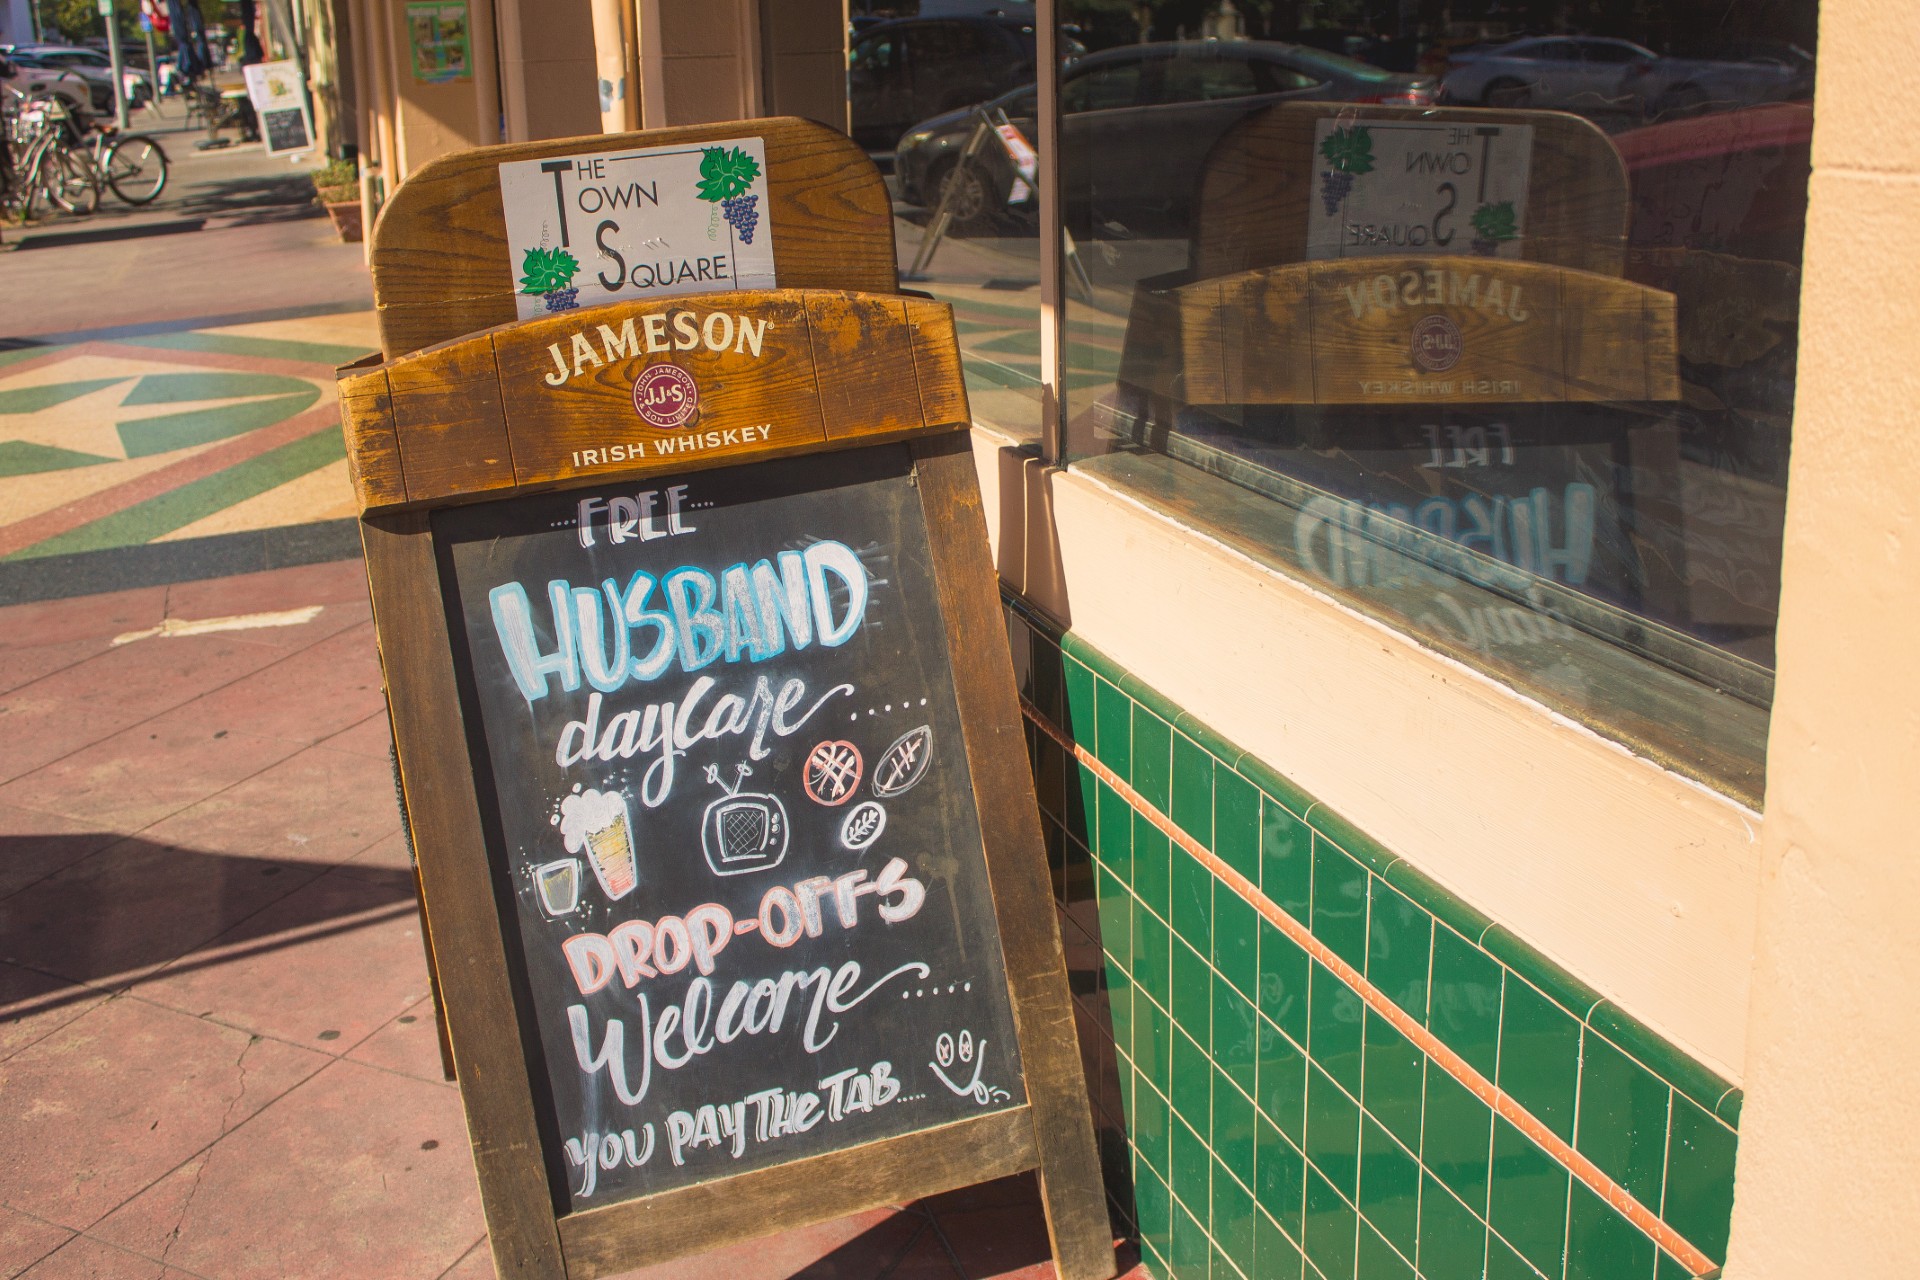 THE
TOWN
SQUARE
JAMESON®
JOHN JAMESON
JJ&S
& SON LIMITED
IRISH WHISKEY
....FREE....
HUSBAND
daycare.....
DROP-OFFS
Welcome.....
YOU PAY THE TAB.....